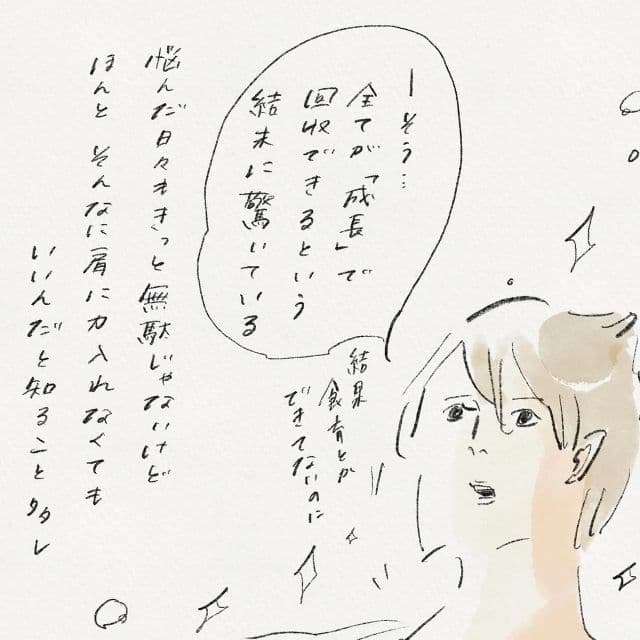 ―そう…
全てが「成長」で
回収できるという
結末に驚いている
結果
食育とか
できてないのに
悩んだ日々もきっと無駄じゃないけど
ほんと そんなに肩に力入れなくても
いいんだと知ること多々し